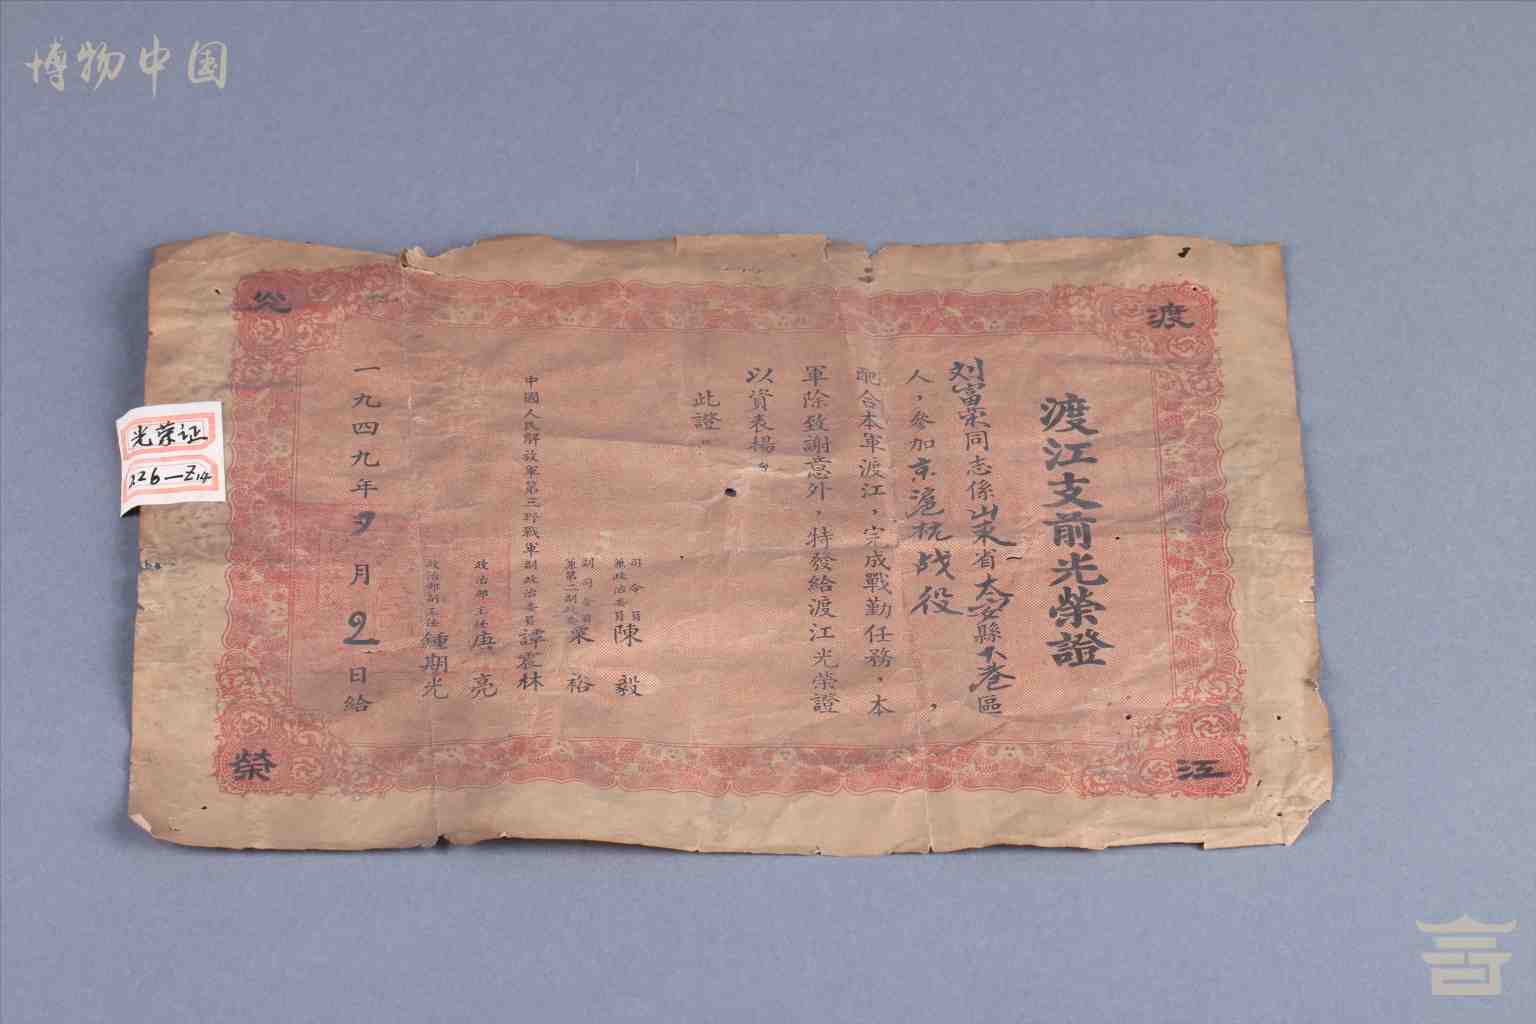 博物中国
渡
江
光
榮
渡江支前光榮證
刘富荣同志係山东省太安縣下巷區
人，參加京滬杭战役，
配合本軍渡江，完成戰勤任務。本
軍除致謝意外，特發給渡江光榮證
以資表揚。
此證。
司令員
兼政治委員 陳毅
副司令員
兼第二副政委 粟裕
中國人民解放軍第三野戰軍副政治委員 譚震林
政治部主任 唐亮
政治部副主任 鍾期光
一九四九年 月 2 日給
光荣证
226—Z14